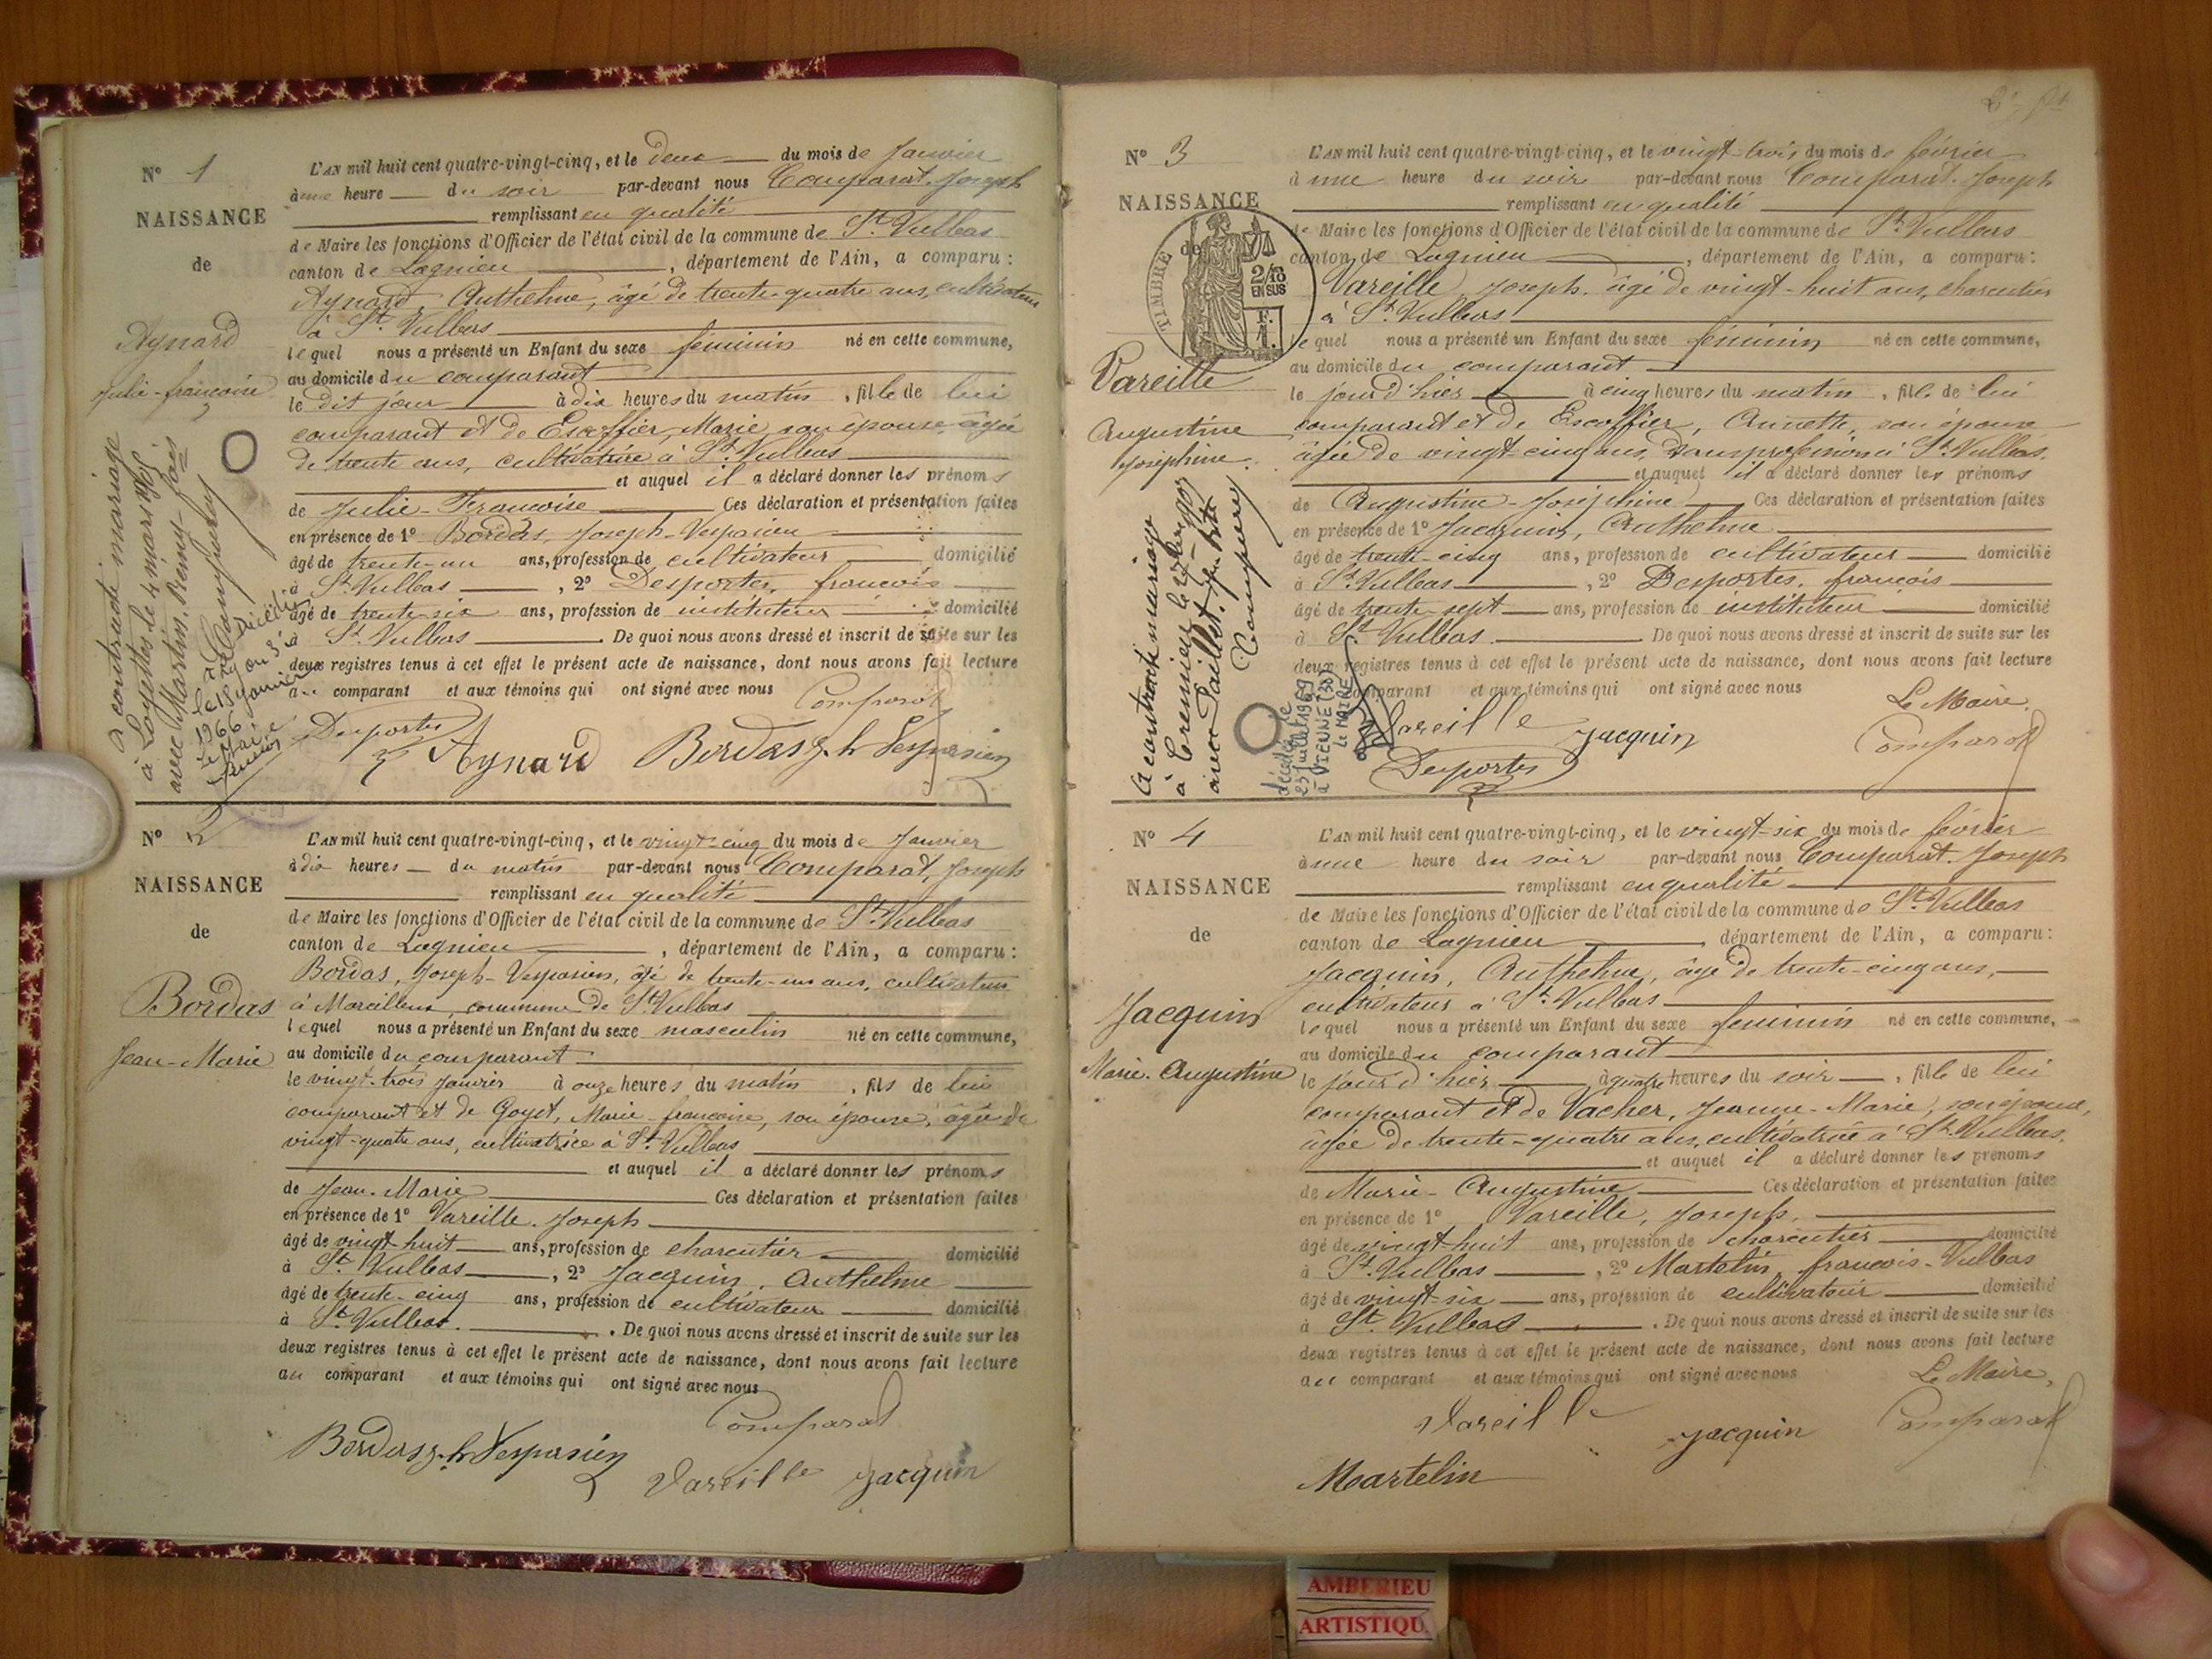 N° 1
NAISSANCE
de
Aynard
Julie-françoise
L'AN mil huit cent quatre-vingt-cinq, et le deux du mois de Janvier
à une heure du soir par-devant nous Comparat, Joseph
remplissant en qualité
de Maire les fonctions d'Officier de l'état civil de la commune de St. Vulbas
canton de Lagnieu, département de l'Ain, a comparu :
Aynard, Anthelme, âgé de trente-quatre ans, cultivateur
à St. Vulbas
lequel nous a présenté un Enfant du sexe féminin né en cette commune,
au domicile du comparant
le dit jour à dix heures du matin, fille de lui
comparant et de Escoffier, Marie son épouse, âgée
de trente ans, cultivatrice à St. Vulbas
et auquel il a déclaré donner les prénoms
de Julie-Françoise Ces déclaration et présentation faites
en présence de 1° Bordas, Joseph-Vespasien
âgé de trente-un ans, profession de cultivateur domicilié
à St. Vulbas, 2° Desportes, françois
âgé de trente-six ans, profession de instituteur domicilié
à St. Vulbas. De quoi nous avons dressé et inscrit de suite sur les
deux registres tenus à cet effet le présent acte de naissance, dont nous avons fait lecture
au comparant et aux témoins qui ont signé avec nous
Comparat
Desportes
Aynard Bordas J. h Vespasien
A contracté mariage
à Loyettes le 4 mars
avec Martin, Rémy-
Décédée
1966
N° 2
NAISSANCE
de
Bordas
Jean-Marie
L'AN mil huit cent quatre-vingt-cinq, et le vingt-cinq du mois de Janvier
à dix heures du matin par-devant nous Comparat, Joseph
remplissant en qualité
de Maire les fonctions d'Officier de l'état civil de la commune de St. Vulbas
canton de Lagnieu, département de l'Ain, a comparu :
Bordas, Joseph-Vespasien, âgé de trente-un ans, cultivateur
à Marcilleux, commune de St. Vulbas
lequel nous a présenté un Enfant du sexe masculin né en cette commune,
au domicile du comparant
le vingt-trois Janvier à onze heures du matin, fils de lui
comparant et de Goyet, Marie-françoise, son épouse, âgée de
vingt-quatre ans, cultivatrice à St. Vulbas
et auquel il a déclaré donner les prénoms
de Jean-Marie Ces déclaration et présentation faites
en présence de 1° Vareille, Joseph
âgé de vingt-huit ans, profession de charcutier domicilié
à St. Vulbas, 2° Jacquin, Anthelme
âgé de trente-cinq ans, profession de cultivateur domicilié
à St. Vulbas. De quoi nous avons dressé et inscrit de suite sur les
deux registres tenus à cet effet le présent acte de naissance, dont nous avons fait lecture
au comparant et aux témoins qui ont signé avec nous
Comparat
Bordas J. h Vespasien Vareille Jacquin
N° 3
NAISSANCE
de
TIMBRE
2/10
EN SUS
F.
1.
Vareille
Augustine
Joséphine.
L'AN mil huit cent quatre-vingt-cinq, et le vingt-trois du mois de février
à une heure du soir par-devant nous Comparat, Joseph
remplissant en qualité
de Maire les fonctions d'Officier de l'état civil de la commune de St. Vulbas
canton de Lagnieu, département de l'Ain, a comparu :
Vareille, Joseph, âgé de vingt-huit ans, charcutier
à St. Vulbas
lequel nous a présenté un Enfant du sexe féminin né en cette commune,
au domicile du comparant
le jour d'hier à cinq heures du matin, fille de lui
comparant et de Escoffier, Annette, son épouse
âgée de vingt-cinq ans, sans profession à St. Vulbas.
et auquel il a déclaré donner les prénoms
de Augustine-Joséphine Ces déclaration et présentation faites
en présence de 1° Jacquin, Anthelme
âgé de trente-cinq ans, profession de cultivateur domicilié
à St. Vulbas, 2° Desportes, françois
âgé de trente-sept ans, profession de instituteur domicilié
à St. Vulbas. De quoi nous avons dressé et inscrit de suite sur les
deux registres tenus à cet effet le présent acte de naissance, dont nous avons fait lecture
au comparant et aux témoins qui ont signé avec nous
Le Maire,
Vareille Jacquin Comparat
Desportes
A contracté mariage
à Crémieu le
avec Paillet,
décédée le
23 juillet 1969
à VIENNE (38)
Le MAIRE
N° 4
NAISSANCE
de
Jacquin
Marie-Augustine
L'AN mil huit cent quatre-vingt-cinq, et le vingt-six du mois de février
à une heure du soir par-devant nous Comparat, Joseph
remplissant en qualité
de Maire les fonctions d'Officier de l'état civil de la commune de St. Vulbas
canton de Lagnieu département de l'Ain, a comparu :
Jacquin, Anthelme, âgé de trente-cinq ans,
cultivateur à St. Vulbas
lequel nous a présenté un Enfant du sexe féminin né en cette commune,
au domicile du comparant
le jour d'hier à quatre heures du soir, fille de lui
comparant et de Vacher, Jeanne-Marie, son épouse,
âgée de trente-quatre ans, cultivatrice à St. Vulbas.
et auquel il a déclaré donner les prénoms
de Marie-Augustine Ces déclaration et présentation faites
en présence de 1° Vareille, Joseph,
âgé de vingt-huit ans, profession de charcutier domicilié
à St. Vulbas, 2° Martelin, françois-Vulbas
âgé de vingt-six ans, profession de cultivateur domicilié
à St. Vulbas. De quoi nous avons dressé et inscrit de suite sur les
deux registres tenus à cet effet le présent acte de naissance, dont nous avons fait lecture
au comparant et aux témoins qui ont signé avec nous
Le Maire,
Vareille Jacquin Comparat
Martelin
AMBERIEU
ARTISTIQU